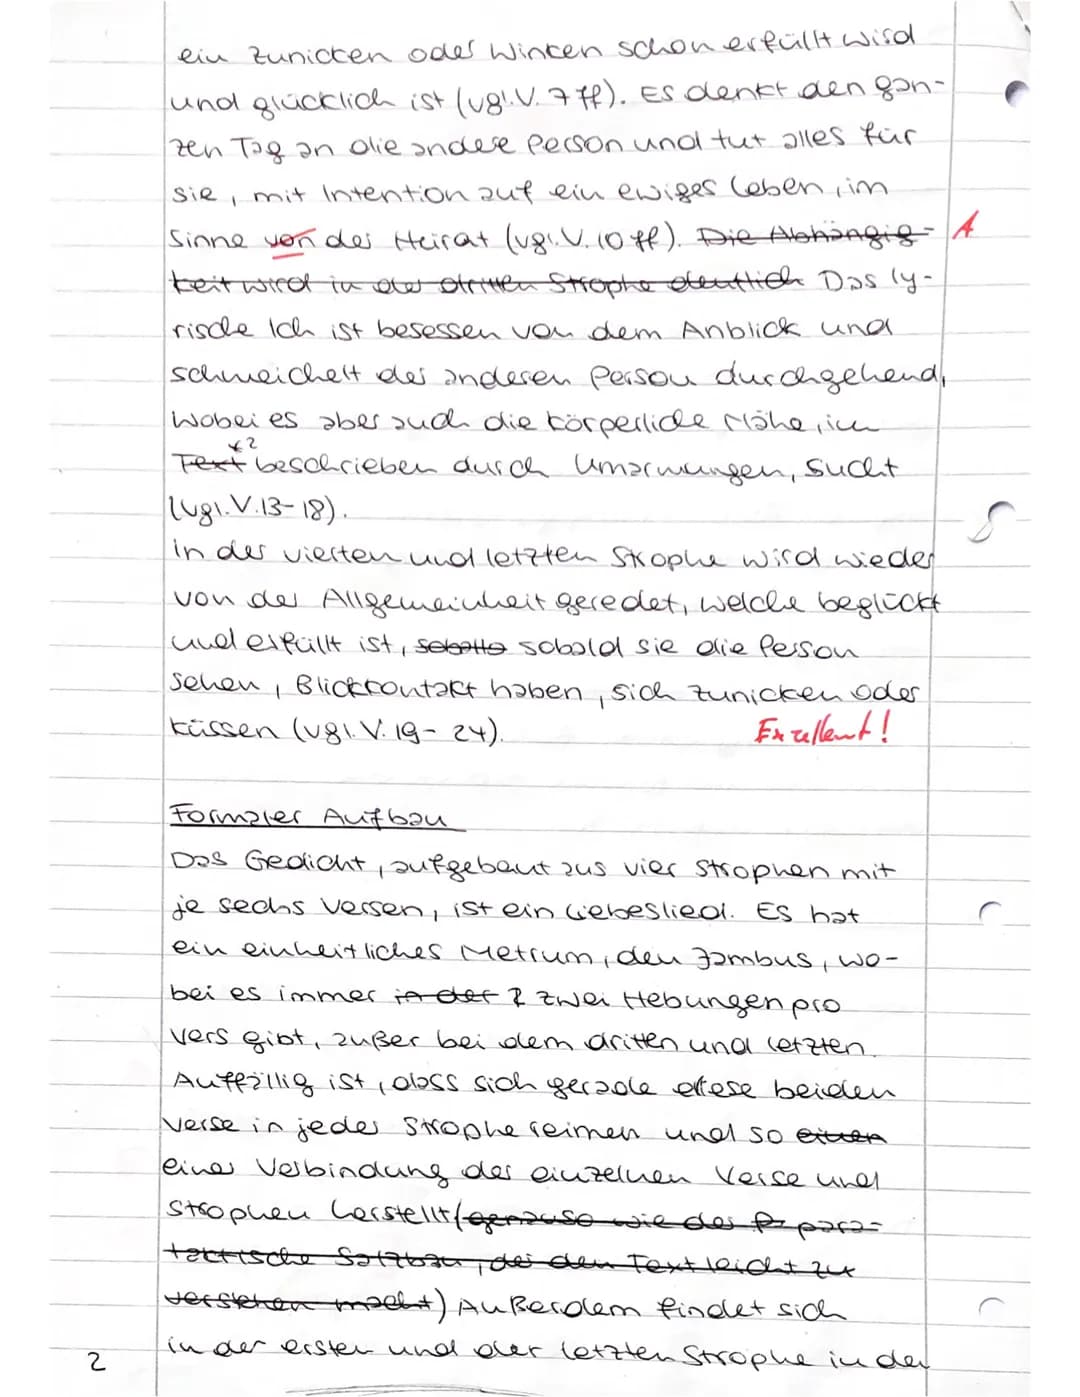 ein Zunicken oder Winken schon erfüllt wird
und glücklich ist (vgl. V. 7 ff). Es denkt den gan-
zen Tag an die andere Person und tut alles für
sie, mit Intention auf ein ewiges Leben, im
Sinne von der Heirat (vgl. V. 10 ff). Die Abhängig- A
keit wird in der dritten Strophe deutlich Das ly-
rische Ich ist besessen von dem Anblick und
schmeichelt der anderen Person durchgehend,
wobei es aber auch die körperliche Nähe, im
*2
Text beschrieben durch Umarmungen, sucht
(vgl. V. 13-18).
In der vierten und letzten Strophe wird wieder
von der Allgemeinheit geredet, welche beglückt
und erfüllt ist, sobald sie die Person
sehen, Blickkontakt haben, sich zunicken oder
küssen (vgl. V. 19-24). Exzellent!
Formaler Aufbau
Das Gedicht, aufgebaut aus vier Strophen mit
je sechs Versen, ist ein Liebeslied. Es hat
ein einheitliches Metrum, den Jambus, wo-
bei es immer in der zwei Hebungen pro
Vers gibt, außer bei dem dritten und letzten.
Auffällig ist, dass sich gerade diese beiden
Verse in jeder Strophe reimen und so einen
einer Verbindung der einzelnen Verse und
Strophen herstellt (genauso wie der para-
taktische Satzbau, der den Text leicht zu
verstehen macht) Außerdem findet sich
in der ersten und der letzten Strophe in den
2